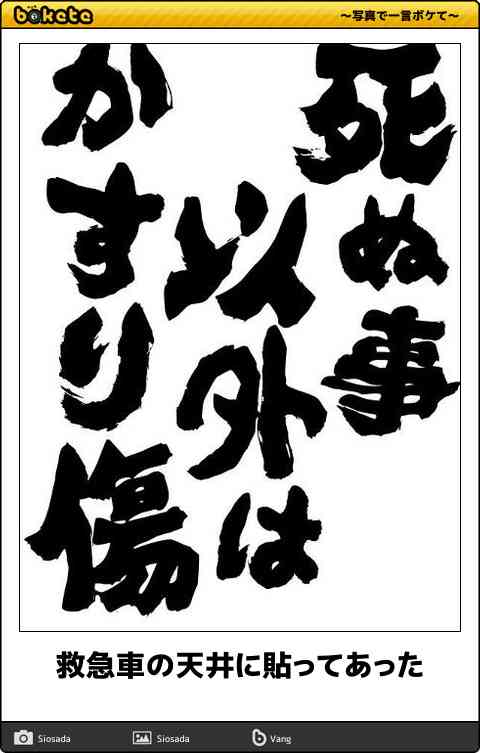 bokete
～写真で一言ボケて～
死ぬ事
以外は
かすり傷
救急車の天井に貼ってあった
Siosada
Siosada
Vang